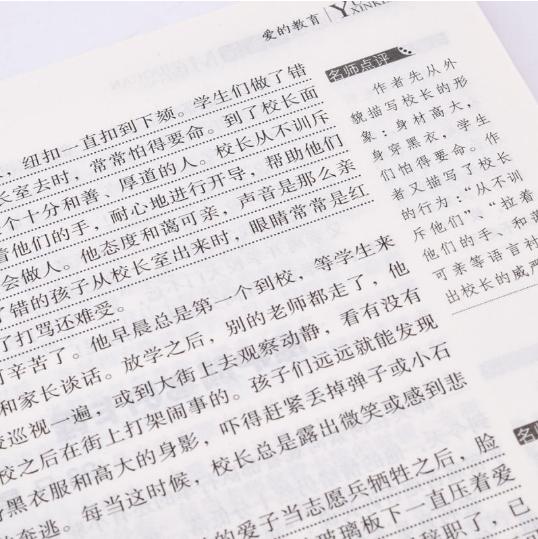 爱的教育
XINKE
名师点评
作者先从外
貌描写校长的形
象：身材高大，
身穿黑衣，学生
们怕得要命。作
者又描写了校长
的行为：“从不训
斥他们”“拉着
他们的手、和蔼
可亲等语言社
出校长的威严
名师
，纽扣一直扣到下颏。学生们做了错
长室去时，常常怕得要命。到了校长面
个十分和善、厚道的人。校长从不训斥
着他们的手，耐心地进行开导，帮助他们
会做人。他态度和蔼可亲，声音是那么亲
了错的孩子从校长室出来时，眼睛常常是红
了打骂还难受。
可辛苦了。他早晨总是第一个到校，等学生来
和家长谈话。放学之后，别的老师都走了，他
校巡视一遍，或到大街上去观察动静，看有没有
校之后在街上打架闹事的。孩子们远远就能发现
黑衣服和高大的身影，吓得赶紧丢掉弹子或小石
奔逃。每当这时候，校长总是露出微笑或感到悲
的爱子当志愿兵牺牲之后，脸
玻璃板下一直压着爱
辞职了，已